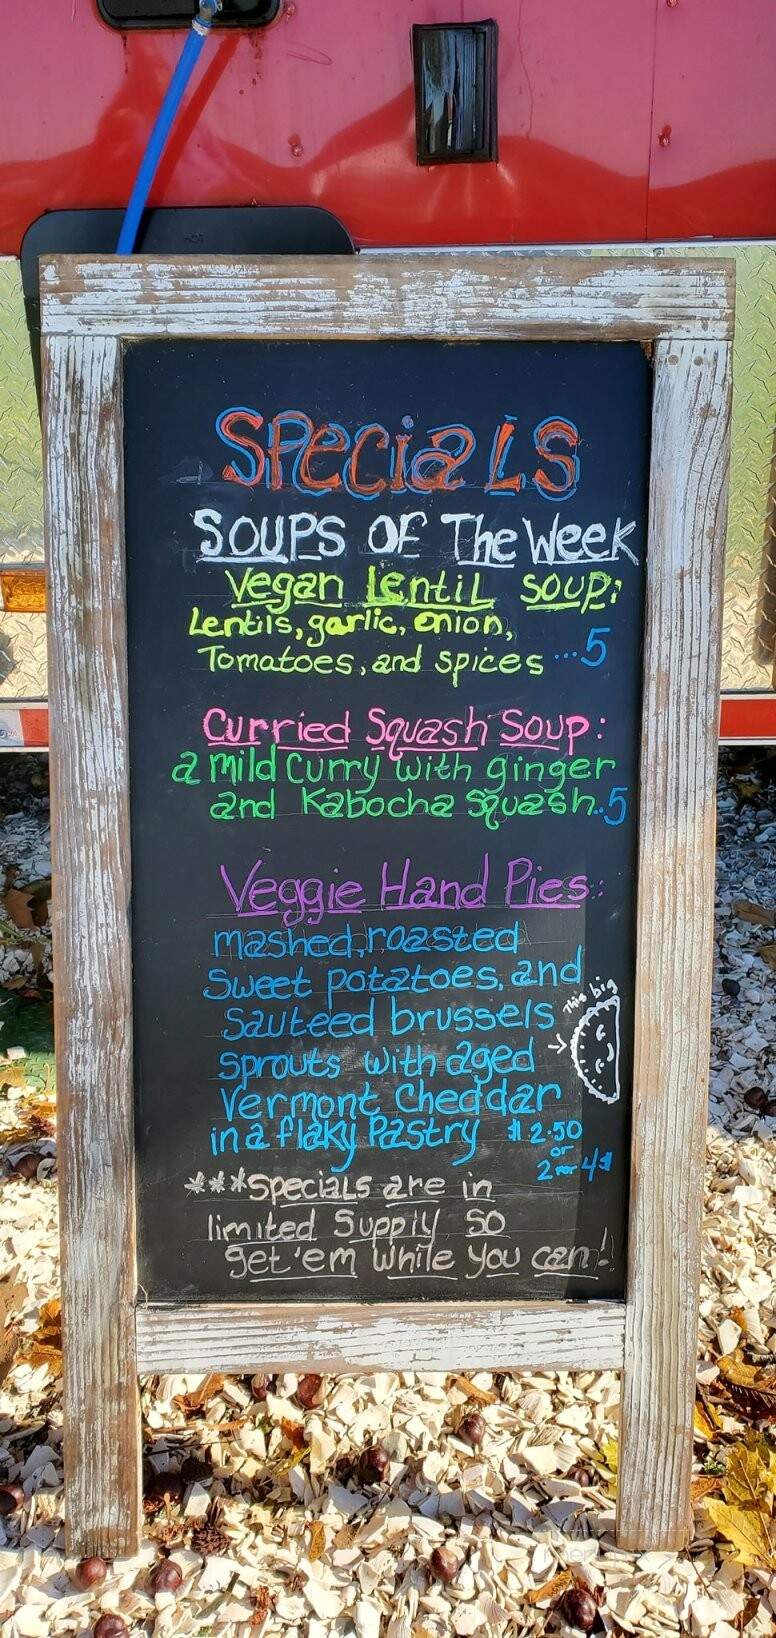 SPeciaLS
SOUPS OF The Week
Vegan Lentil soup:
Lentils, garlic, onion,
Tomatoes, and spices ...5
Curried Squash Soup:
a mild curry with ginger
and Kabocha Squash..5
Veggie Hand Pies:
mashed, roasted
Sweet potatoes, and
Sauteed brussels
sprouts with aged
Vermont Cheddar
in a flaky Pastry $2.50
or
2 for 4$
This big
***Specials are in
limited Supply so
get 'em while you can!